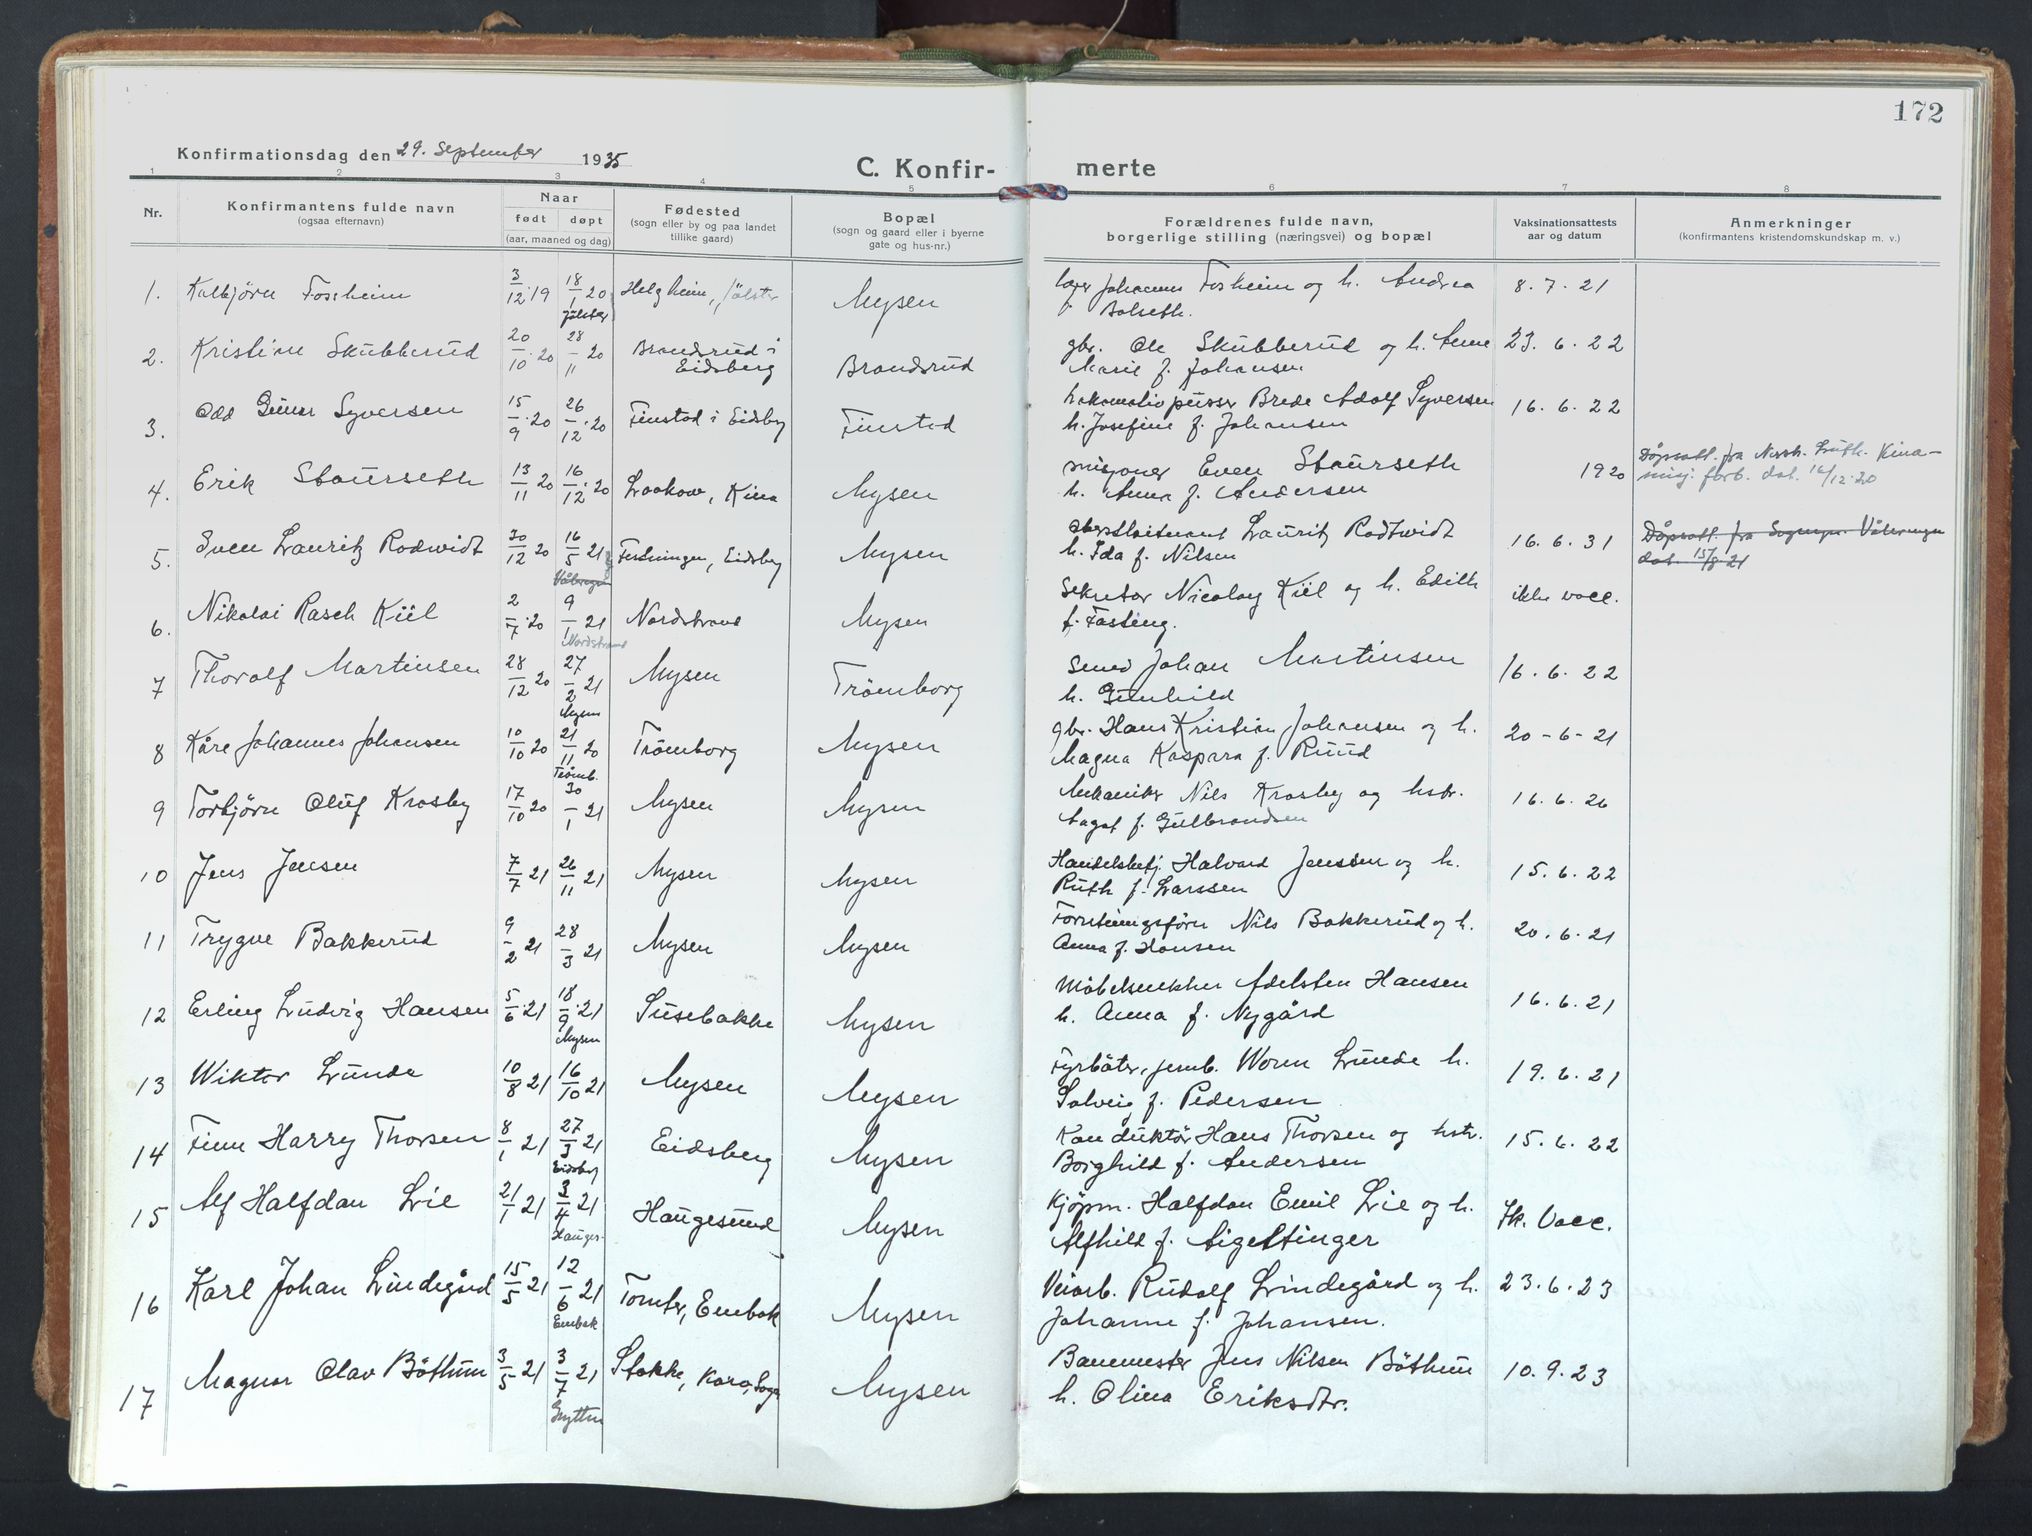 172
Konfirmationsdag den 29. September 1935
C. Konfir- merte
1 2 3 4 5 6 7 8
Nr.
Konfirmantens fulde navn
(ogsaa efternavn)
Naar
født døpt
(aar, maaned og dag)
Fødested
(sogn eller by og paa landet
tillike gaard)
Bopæl
(sogn og gaard eller i byerne
gate og hus-nr.)
Forældrenes fulde navn,
borgerlige stilling (næringsvei) og bopæl
Vaksinationsattests
aar og datum
Anmerkninger
(konfirmantens kristendomskundskap m. v.)
1. Kolbjörn Fossheim 3/12 19 18/1 20 Jölster Helgheim, Jölster Mysen Johannes Fosheim og h. Andrea
f. Bolseth. 8. 7. 21
2. Kristine Skubberud 20/10 20 28/11 20 Brandsrud i
Eidsberg Brandsrud gbr. Ole Skubberud og h. Anne
Marie f. Johansen 23. 6. 22
3. Odd Gunnar Syversen 15/9 20 26/12 20 Finstad i Eidsberg Finstad Lokomotivpusser Brede Adolf Syversen
h. Josefine f. Johansen 16. 6. 22
4. Erik Staurseth 13/11 20 16/12 20 Laohow, Kina Mysen misjonær Even Staurseth
h. Anna f. Andersen 1920 Dåpsatt. fra Norsk Luth. Kina-
misj. forb. dat. 16/12.20
5. Sven Lauritz Rodtwidt 30/12 20 16/5 21 Vålerengen Festningen, Eidsberg Mysen oberstlöitenant Lauritz Rodtwidt
h. Ida f. Nilsen 16. 6. 31 Dåpsatt. fra Sognepr. Vålerengen
dat. 15/8 21
6. Nikolai Rasch Kiil 2/7 20 9/1 21 Nordstrand Nordstrand Mysen Sekretær Nicolay Kiil og h. Edith
f. Fasting. ikke vacc.
7 Thoralf Martinsen 28/12 20 27/2 21 Mysen Mysen Trömborg Smed Johan Martinsen
h. Gunhild 16. 6. 22
8 Kåre Johannes Johansen 10/10 20 21/11 20 Trömb. Trömborg Mysen gbr. Hans Kristian Johansen og h.
Magna Kaspara f. Ruud 20-6-21
9 Torbjörn Oluf Krosby 17/10 20 30/1 21 Mysen Mysen Mekaniker Nils Krosby og hstr.
Aagot f. Gulbrandsen 16. 6. 26
10 Jens Jensen 7/7 21 26/11 21 Mysen Mysen Handelsbetj. Halvard Jenssen og h.
Ruth f. Larssen 15. 6. 22
11 Trygve Bakkerud 9/2 21 28/3 21 Mysen Mysen Nils Bakkerud og h.
Anna f. Hansen 20. 6. 21
12 Erling Ludvig Hansen 5/6 21 18/9 21 Mysen Susebakke Mysen Möbelsnekker Adelsten Hansen
h. Anna f. Nygård 16. 6. 21
13 Wiktor Lunde 10/8 21 16/10 21 Mysen Mysen Fyrböter, jernb. Worm Lunde h.
Solveig f. Pedersen 19. 6. 21
14 Finn Harry Thorsen 8/1 21 27/3 21 Eidsberg Eidsberg Mysen Konduktör Hans Thorsen og hstr.
Borghild f. Andersen 15. 6. 22
15 Alf Halfdan Lie 21/1 21 3/4 21 Hauges. Haugesund Mysen Kjöpm. Halfdan Emil Lie og h.
Alfhild f. Aigeltinger Ik. Vacc.
16 Karl Johan Lindegård 15/5 21 12/6 21 Enebak Tomter, Enebak Mysen Veiarb. Rudolf Lindegård og h.
Johanne f. Johansen. 23. 6. 23
17 Magnar Olav Böthun 3/5 21 3/7 21 Grytten Stokke, Mysen Banemester Jens Nilsen Böthun
h. Olina Eriksdtr. 10. 9. 23